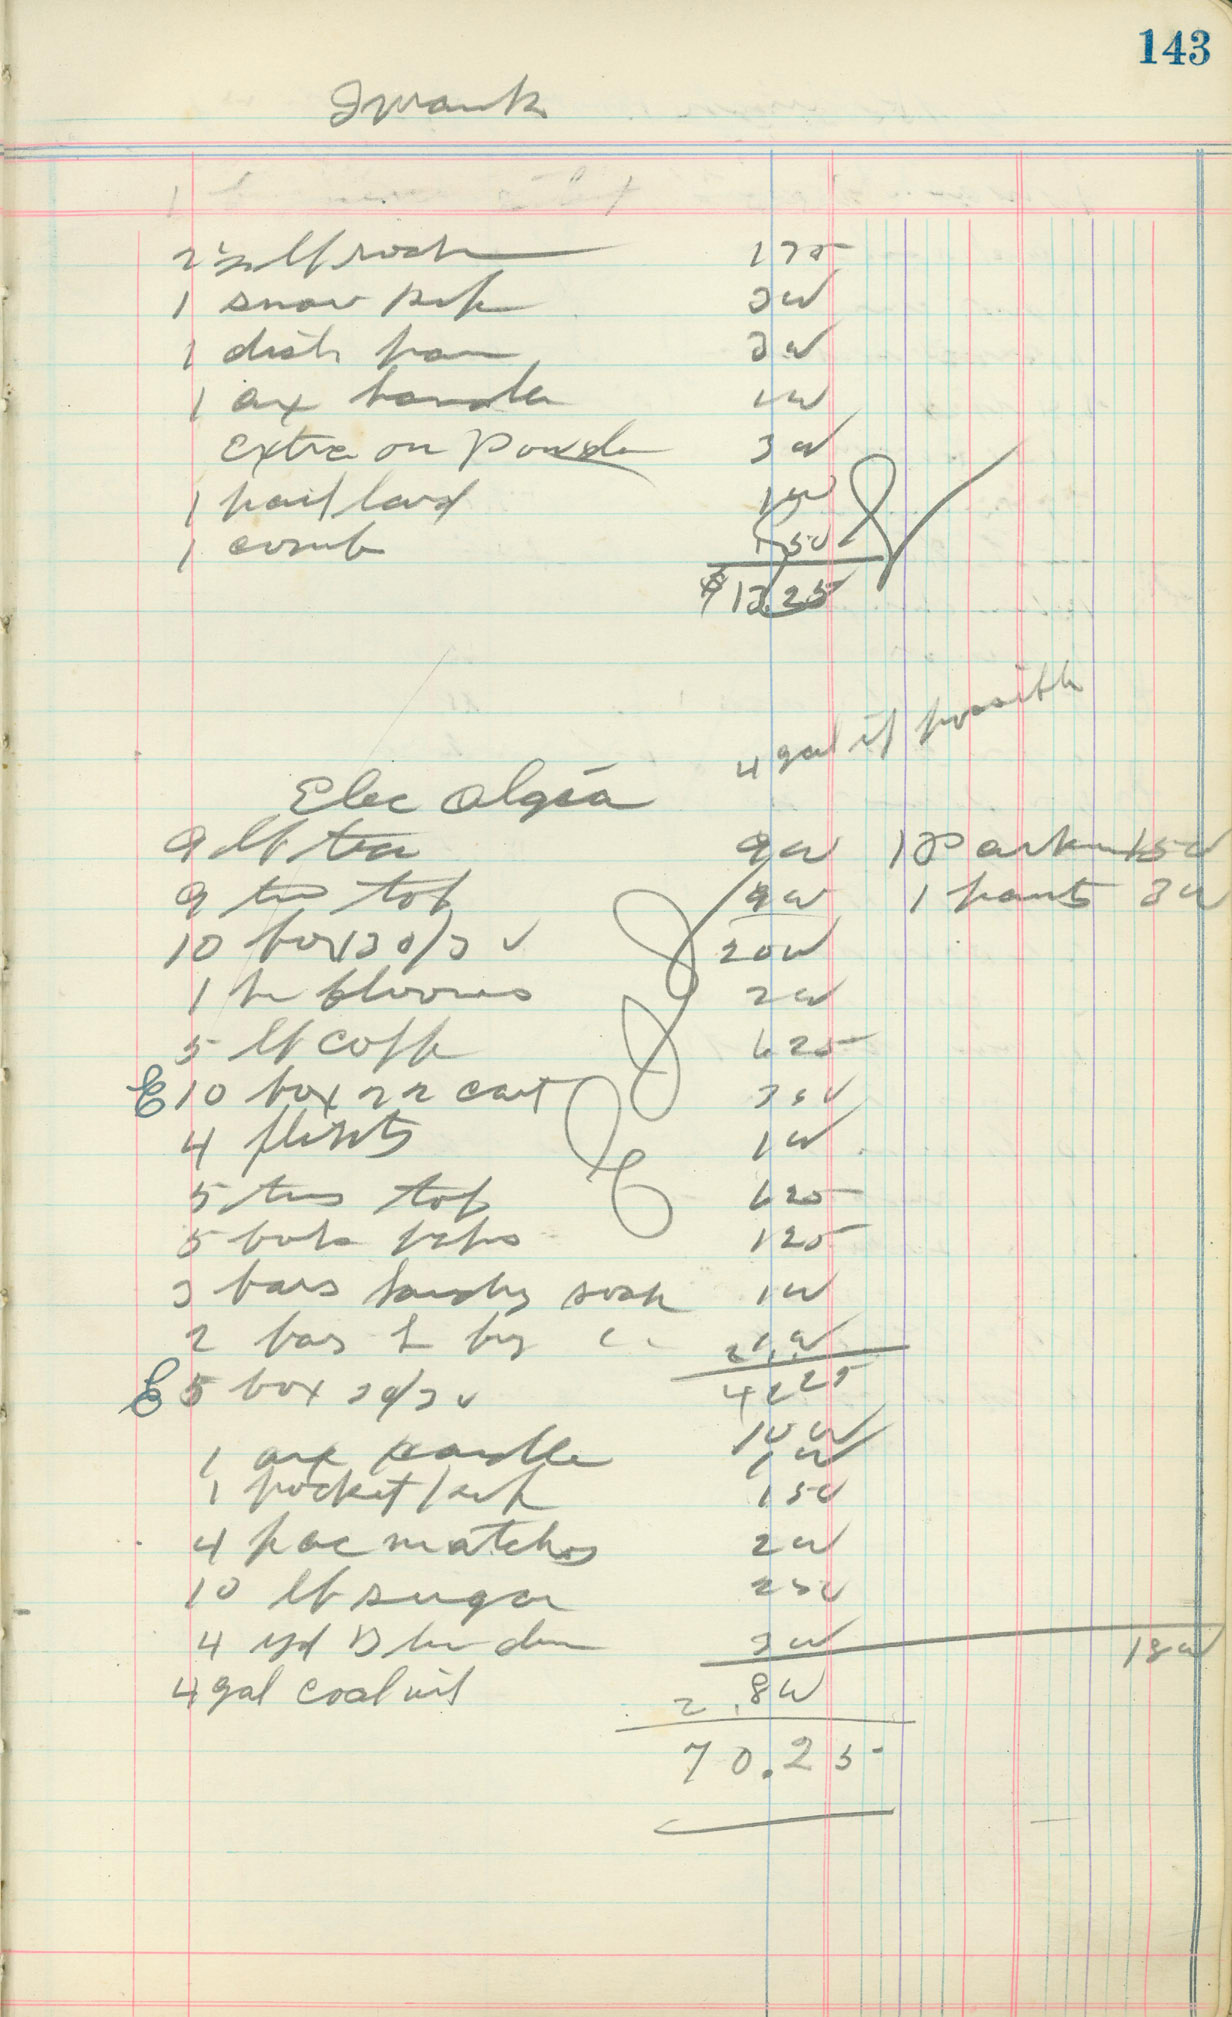 143
2 ½ lb
1 75
1 snow
3 00
1 dish pan
3 00
1 ax handle
1 00
Extra on Powder
3 00
1 pail lard
1 00
1 comb
50
$ 13.25
4 gal if possible
Elec
9 lb tea
9 00
1 Parkie 15 00
9 tins tob
9 00
1 pants 3 00
10 box 30/30
20 00
1 pr bloomers
2 00
5 lb coffe
6 25
E 10 box 22 cart
3 50
4 flints
1 00
5 tins tob
6 25
5 bob
1 25
3 bars laundry soap
1 00
2 bar
42 25
E 5 box 30/30
10 00
1 ax handle
1 00
1 pocket knife
1 50
4 pac matches
2 00
10 lb sugar
2 50
4 yd
3 00
18 00
4 gal coal oil
2.80
70.25